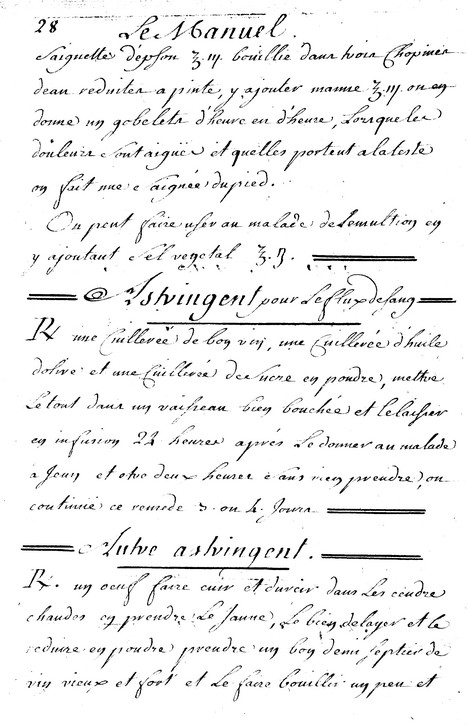 28 Le Manuel.
Saiguette d'epson ℥ iij bouillie dans trois Chopines
deau reduites a pinte, y ajouter manne ℥ iij on en
donne un gobelets d'heure en d'heure, Lorsque les
douleurs sont aiguës et quelles portent a la teste
on fait une Saignée du pied.
On peut faire user au malade de Lemultion en
y ajoutant Sel vegetal ℥ j.
Astringent pour Le flux de sang
℞ une Cuillereé de bon vin, une Cuillereé d'huile
dolive et une Cuillereé de Sucre en poudre, mettre
Le tout dans un vaisseau bien bouchée et le laisser
en infusion 24 heures aprés Le donner au malade
a Jeun et etre deux heures sans rien prendre, on
continuë ce remede 3 ou 4 Jours
Autre astringent.
℞. un oeuf faire cuir et durcir dans Les cendre
chaudes en prendre Le Jaune, Le bien delayer et le
reduire en poudre prendre un bon demi septier de
vin vieux et fort et Le faire bouillir un peu et